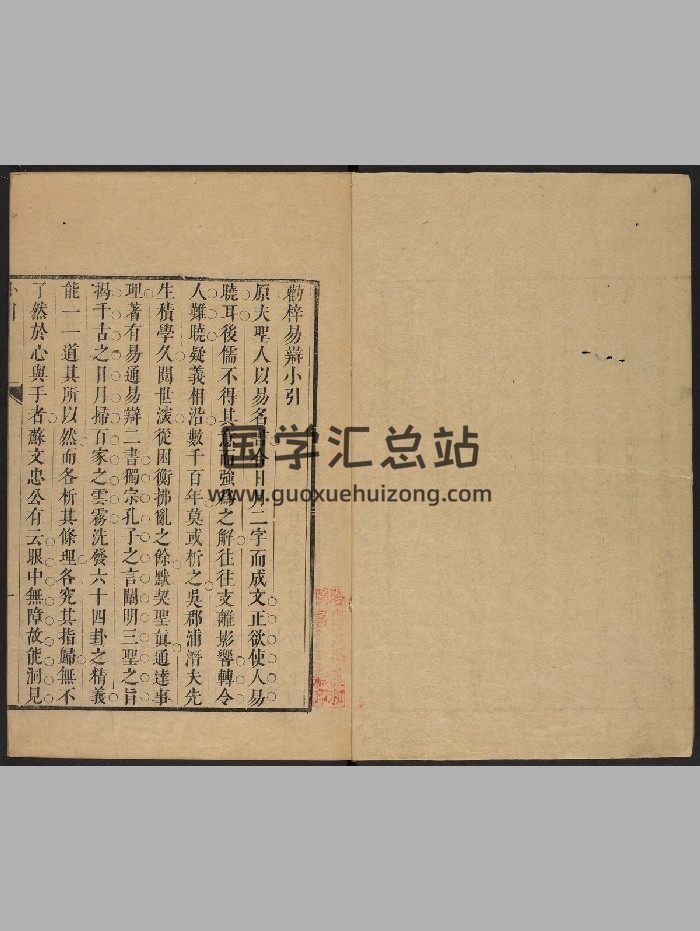 勸梓易辯小引
原夫聖人以易名書合日月二字而成文正欲使人易
曉耳後儒不得其意而強爲之解往往支離影響轉令
人難曉疑義相沿數千百年莫或析之吳郡浦潛夫先
生積學久閱世深從困衡拂亂之餘默契聖眞通達事
理著有易通易辯二書獨宗孔子之言闡明三聖之旨
揭千古之日月掃百家之雲霧洗發六十四卦之精義
能一一道其所以然而各析其條理各究其指歸無不
了然於心與手者蘇文忠公有云眼中無障故能洞見
小引
一
国学汇总站
www.guoxuehuizong.com
圖書